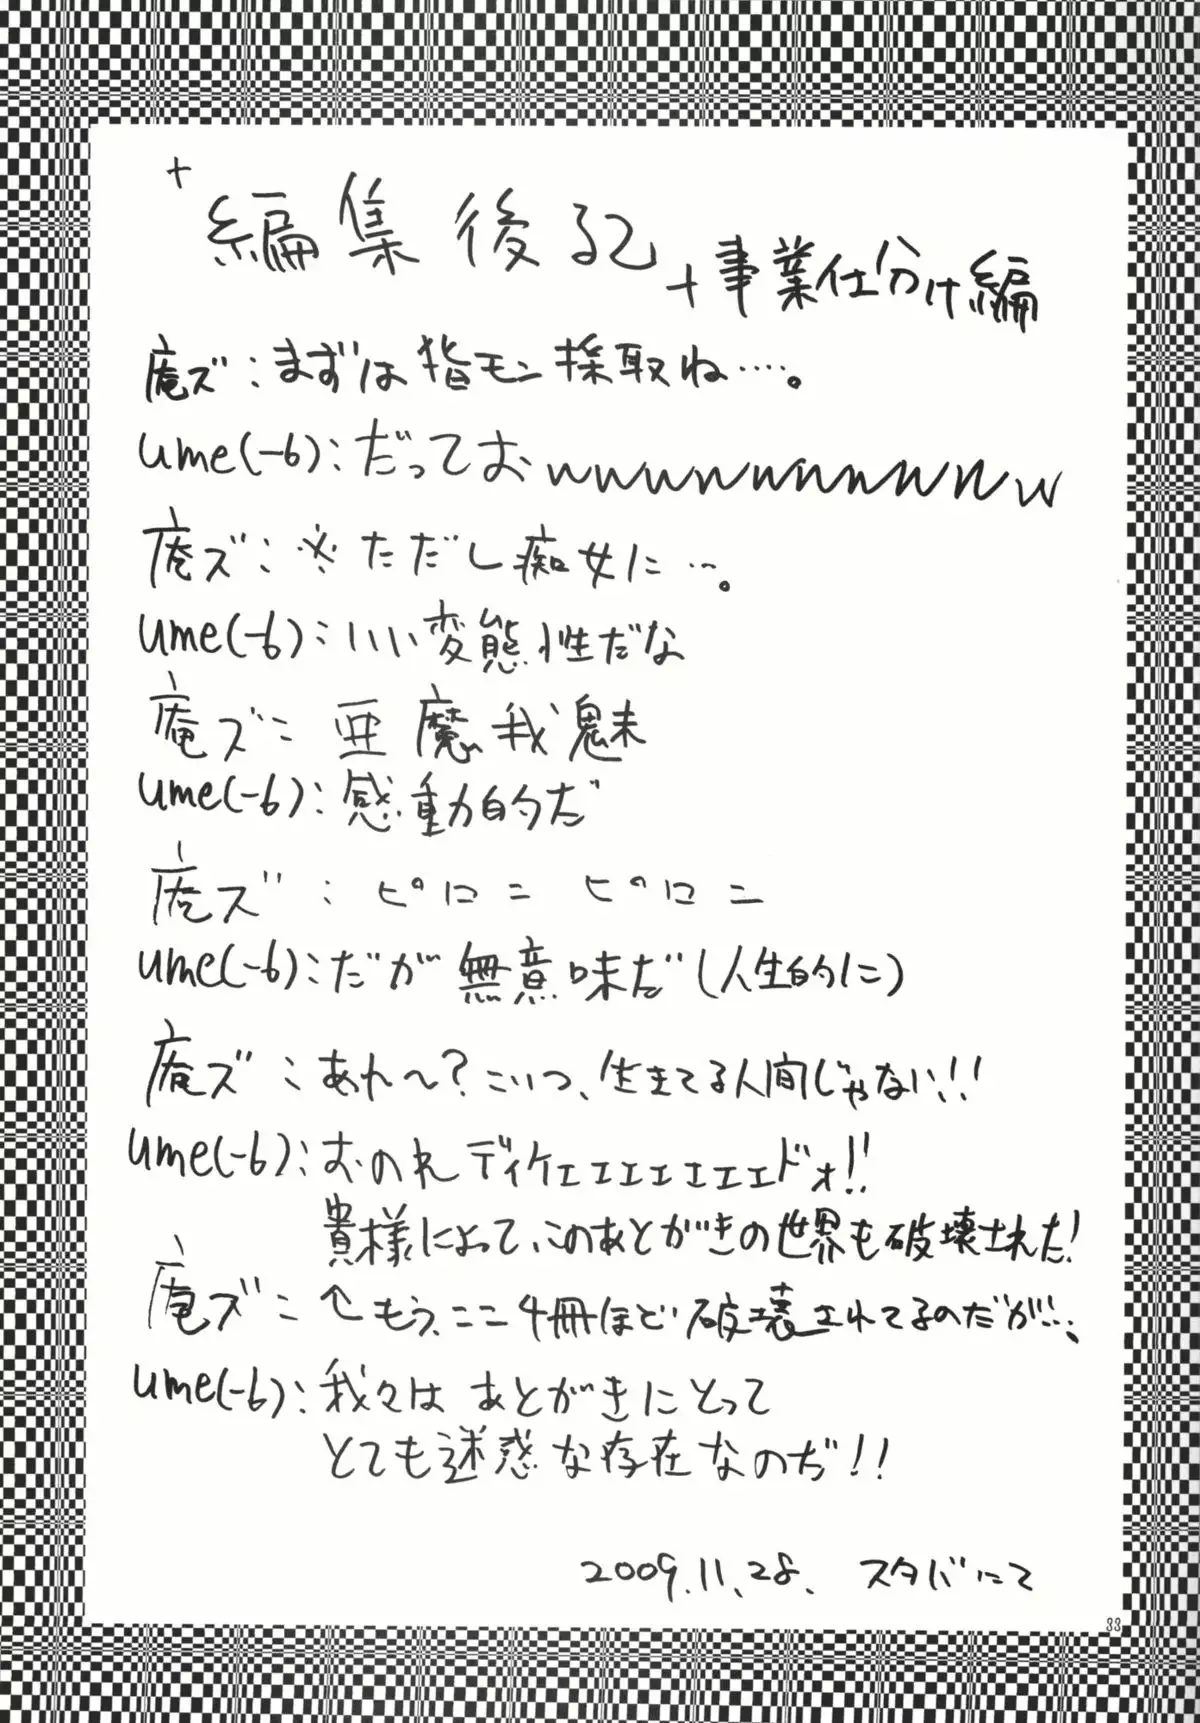 +編集後記+事業仕分け編
庵ズ:まずは指モン採取ね….。
ume(-6):だっておwwwwwwwwwww
庵ズ:※ただし痴女に…。
ume(-6):いい変態性だな
庵ズ:亜魔我魅
ume(-6):感動的だ
庵ズ:ピロニ ピロニ
ume(-6):だが無意味だ(人生的に)
庵ズ:あれ〜?こいつ、生きてる人間じゃない!!
ume(-6):おのれディケェェェェェェェドォ!!
貴様によって、このあとがきの世界も破壊された!
庵ズ:↑もう、ここ4冊ほど破壊されてるのだが…、
ume(-6):我々はあとがきにとって
とても迷惑な存在なのだ!!
2009.11.28. スタバにて
33